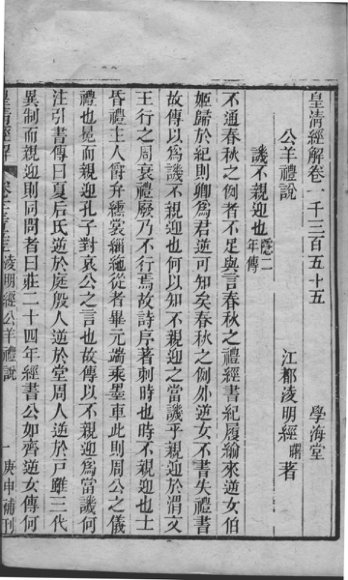 皇清經解卷一千三百五十五
學海堂
公羊禮說
江都凌明經曙著
譏不親迎也隱二年傳
不通春秋之例者不足與言春秋之禮經書紀履緰來逆女伯
姬歸於紀則卿為君逆可知矣春秋之例外逆女不書失禮書
故傳以為譏不親迎也何以知不親迎之當譏乎親迎於渭文
王行之周衰禮廢乃不行焉故詩序著刺時也時不親迎也士
昏禮主人爵弁纁裳緇袘從者畢元端乘墨車此則周公之儀
禮也冕而親迎孔子對哀公之言也故傳以不親迎為當譏何
注引書傳曰夏后氏逆於庭殷人逆於堂周人逆於戶雖三代
異制而親迎則同問者曰莊二十四年經書公如齊逆女傳何
皇清經解
凌明經公羊禮說
一
庚申補刊